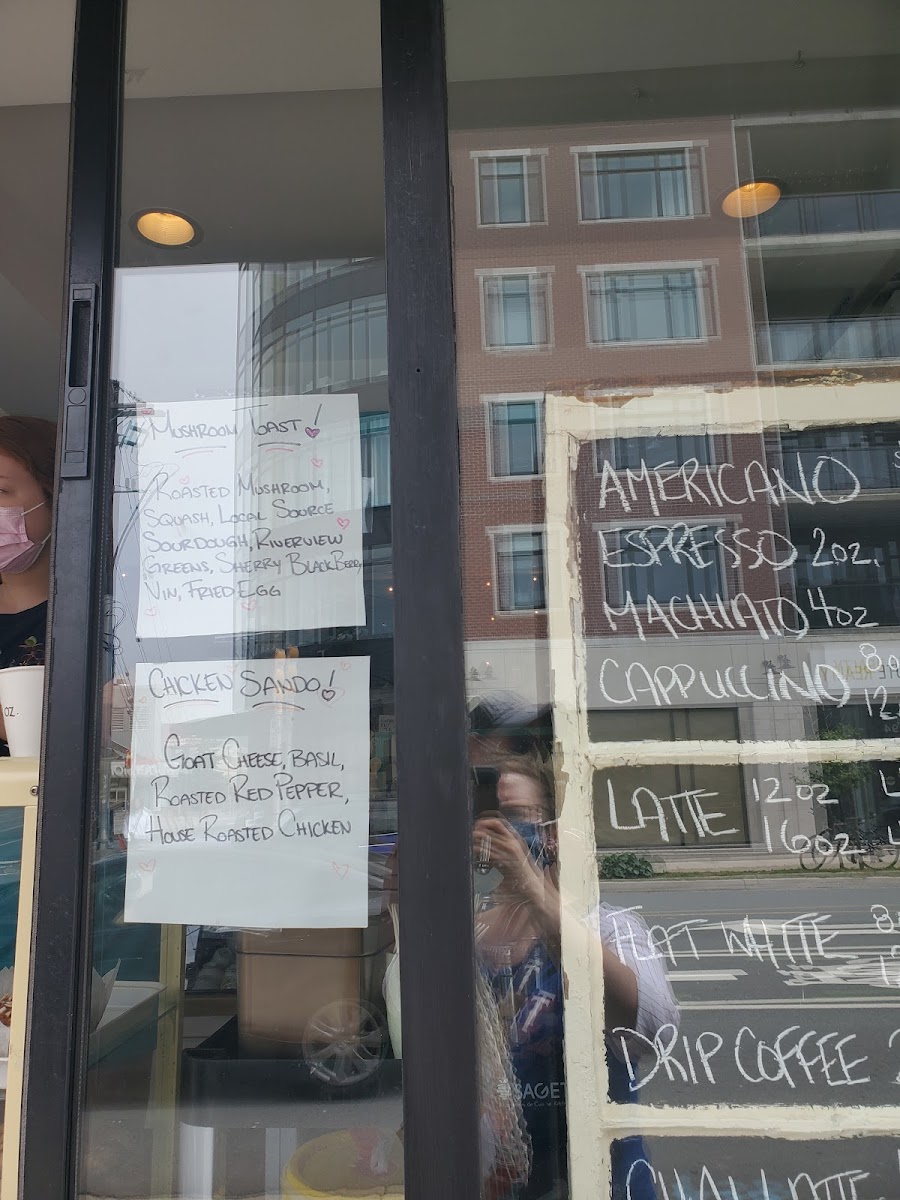 MUSHROOM TOAST!
ROASTED MUSHROOM,
SQUASH, LOCAL SOURCE
SOURDOUGH, RIVERVIEW
GREENS, SHERRY BLACKBERRY
VIN, FRIED EGG
CHICKEN SANDO!
GOAT CHEESE, BASIL,
ROASTED RED PEPPER,
HOUSE ROASTED CHICKEN
OZ.
AMERICANO
ESPRESSO 2OZ.
MACHIATO 4OZ
CAPPUCCINO 8
12
LATTE 12OZ
16OZ
FLAT WHITE 8
DRIP COFFEE 2
CHAI LATTE